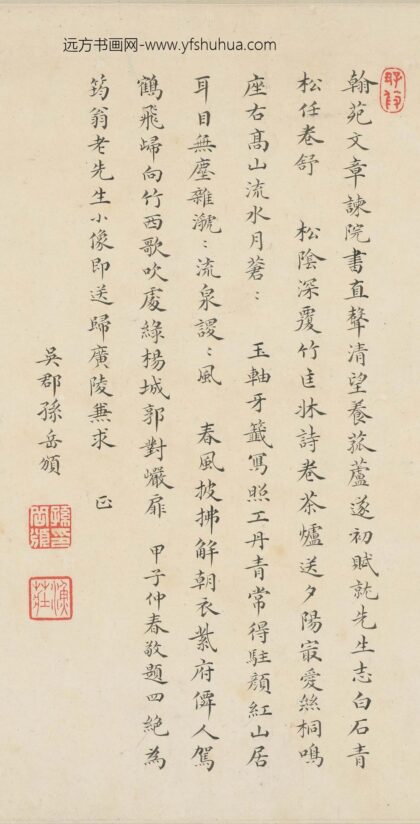 远方书画网-www.yfshuhua.com
翰苑文章諫院書直聲清望養菰蘆遂初賦就先生志白石青
松任卷舒　松陰深覆竹匡牀詩卷茶爐送夕陽冣愛絲桐鳴
座右髙山流水月蒼〻　玉軸牙籤寫照工丹青常得駐顏紅山居
耳目無塵雜漉〻流泉謖〻風　春風披拂解朝衣紫府僊人駕
鶴飛歸向竹西歌吹處綠楊城郭對巖扉　甲子仲春敬題四絕為
筠翁老先生小像即送歸廣陵兼求　正
吳郡孫岳頒